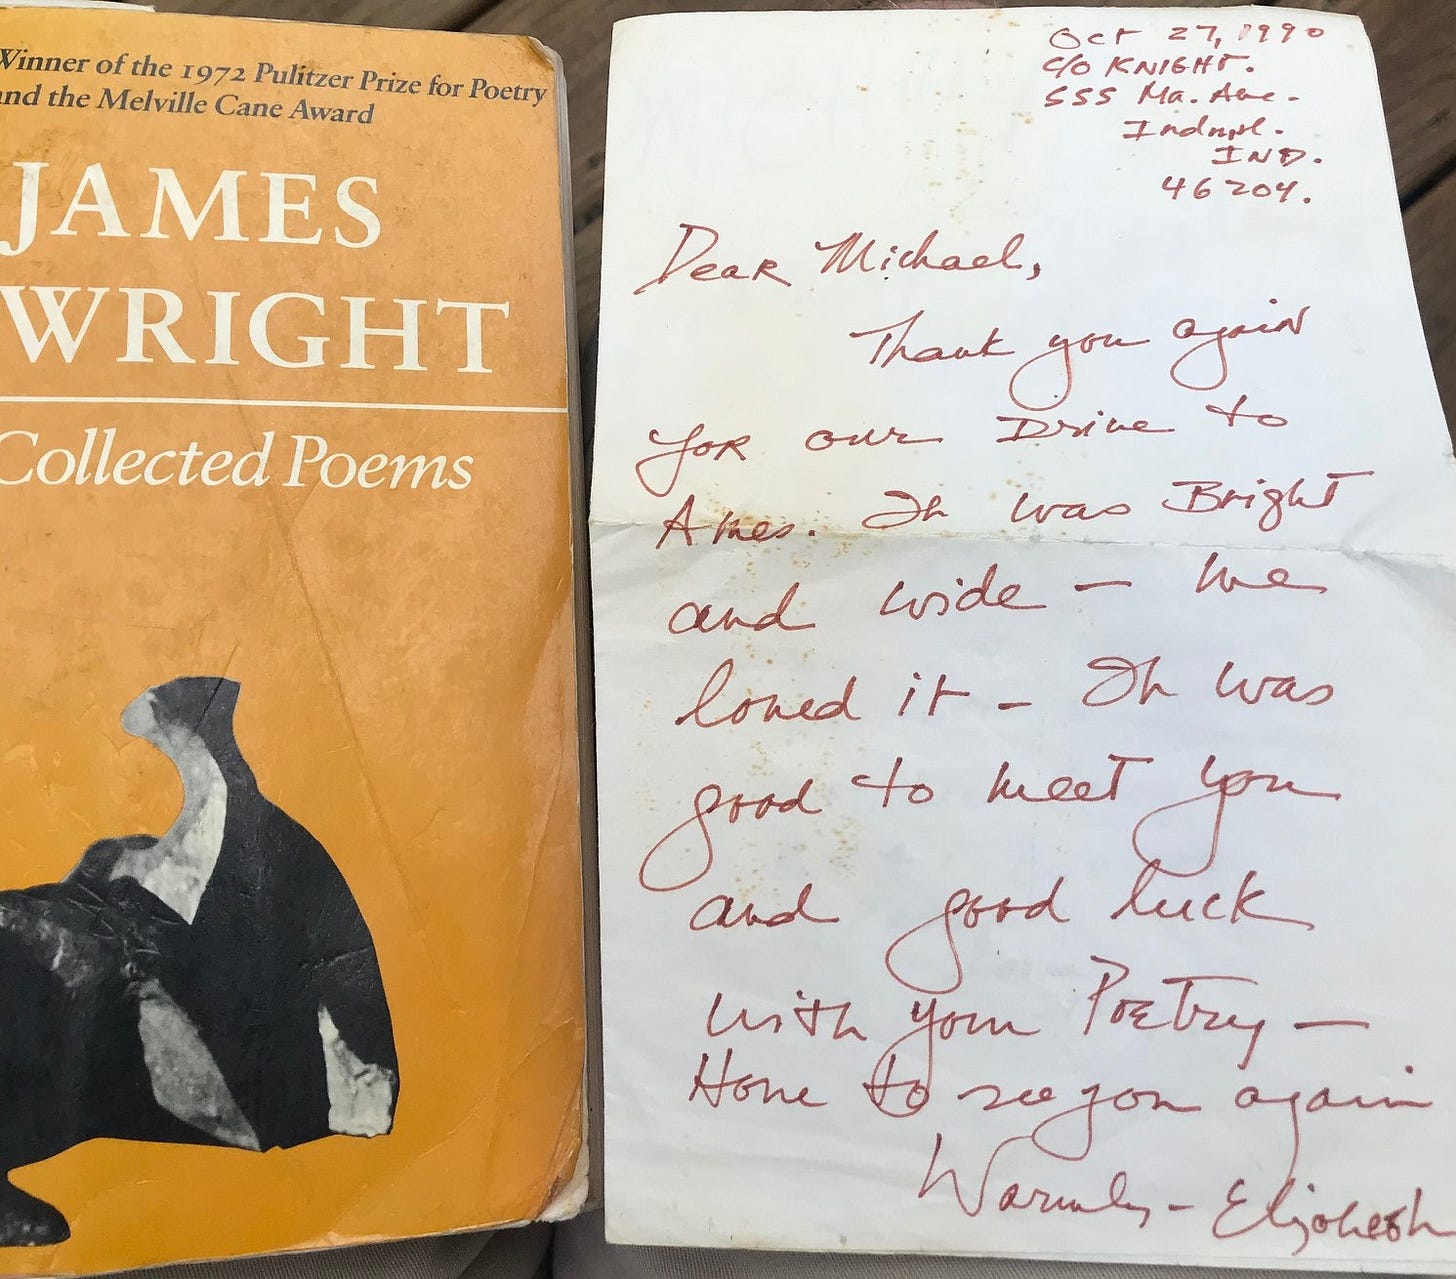 Winner of the 1972 Pulitzer Prize for Poetry
and the Melville Cane Award
JAMES
WRIGHT
Collected Poems
Oct 27, 1990
c/o KNIGHT.
555 Ma. Ave.
IND.
46204.
Dear Michael,
Thank you again
for our Drive to
Ames. It was Bright
and wide – we
loved it – It was
good to meet you
and good luck
with your Poetry –
Hope to see you again
Warmly – Elizabeth